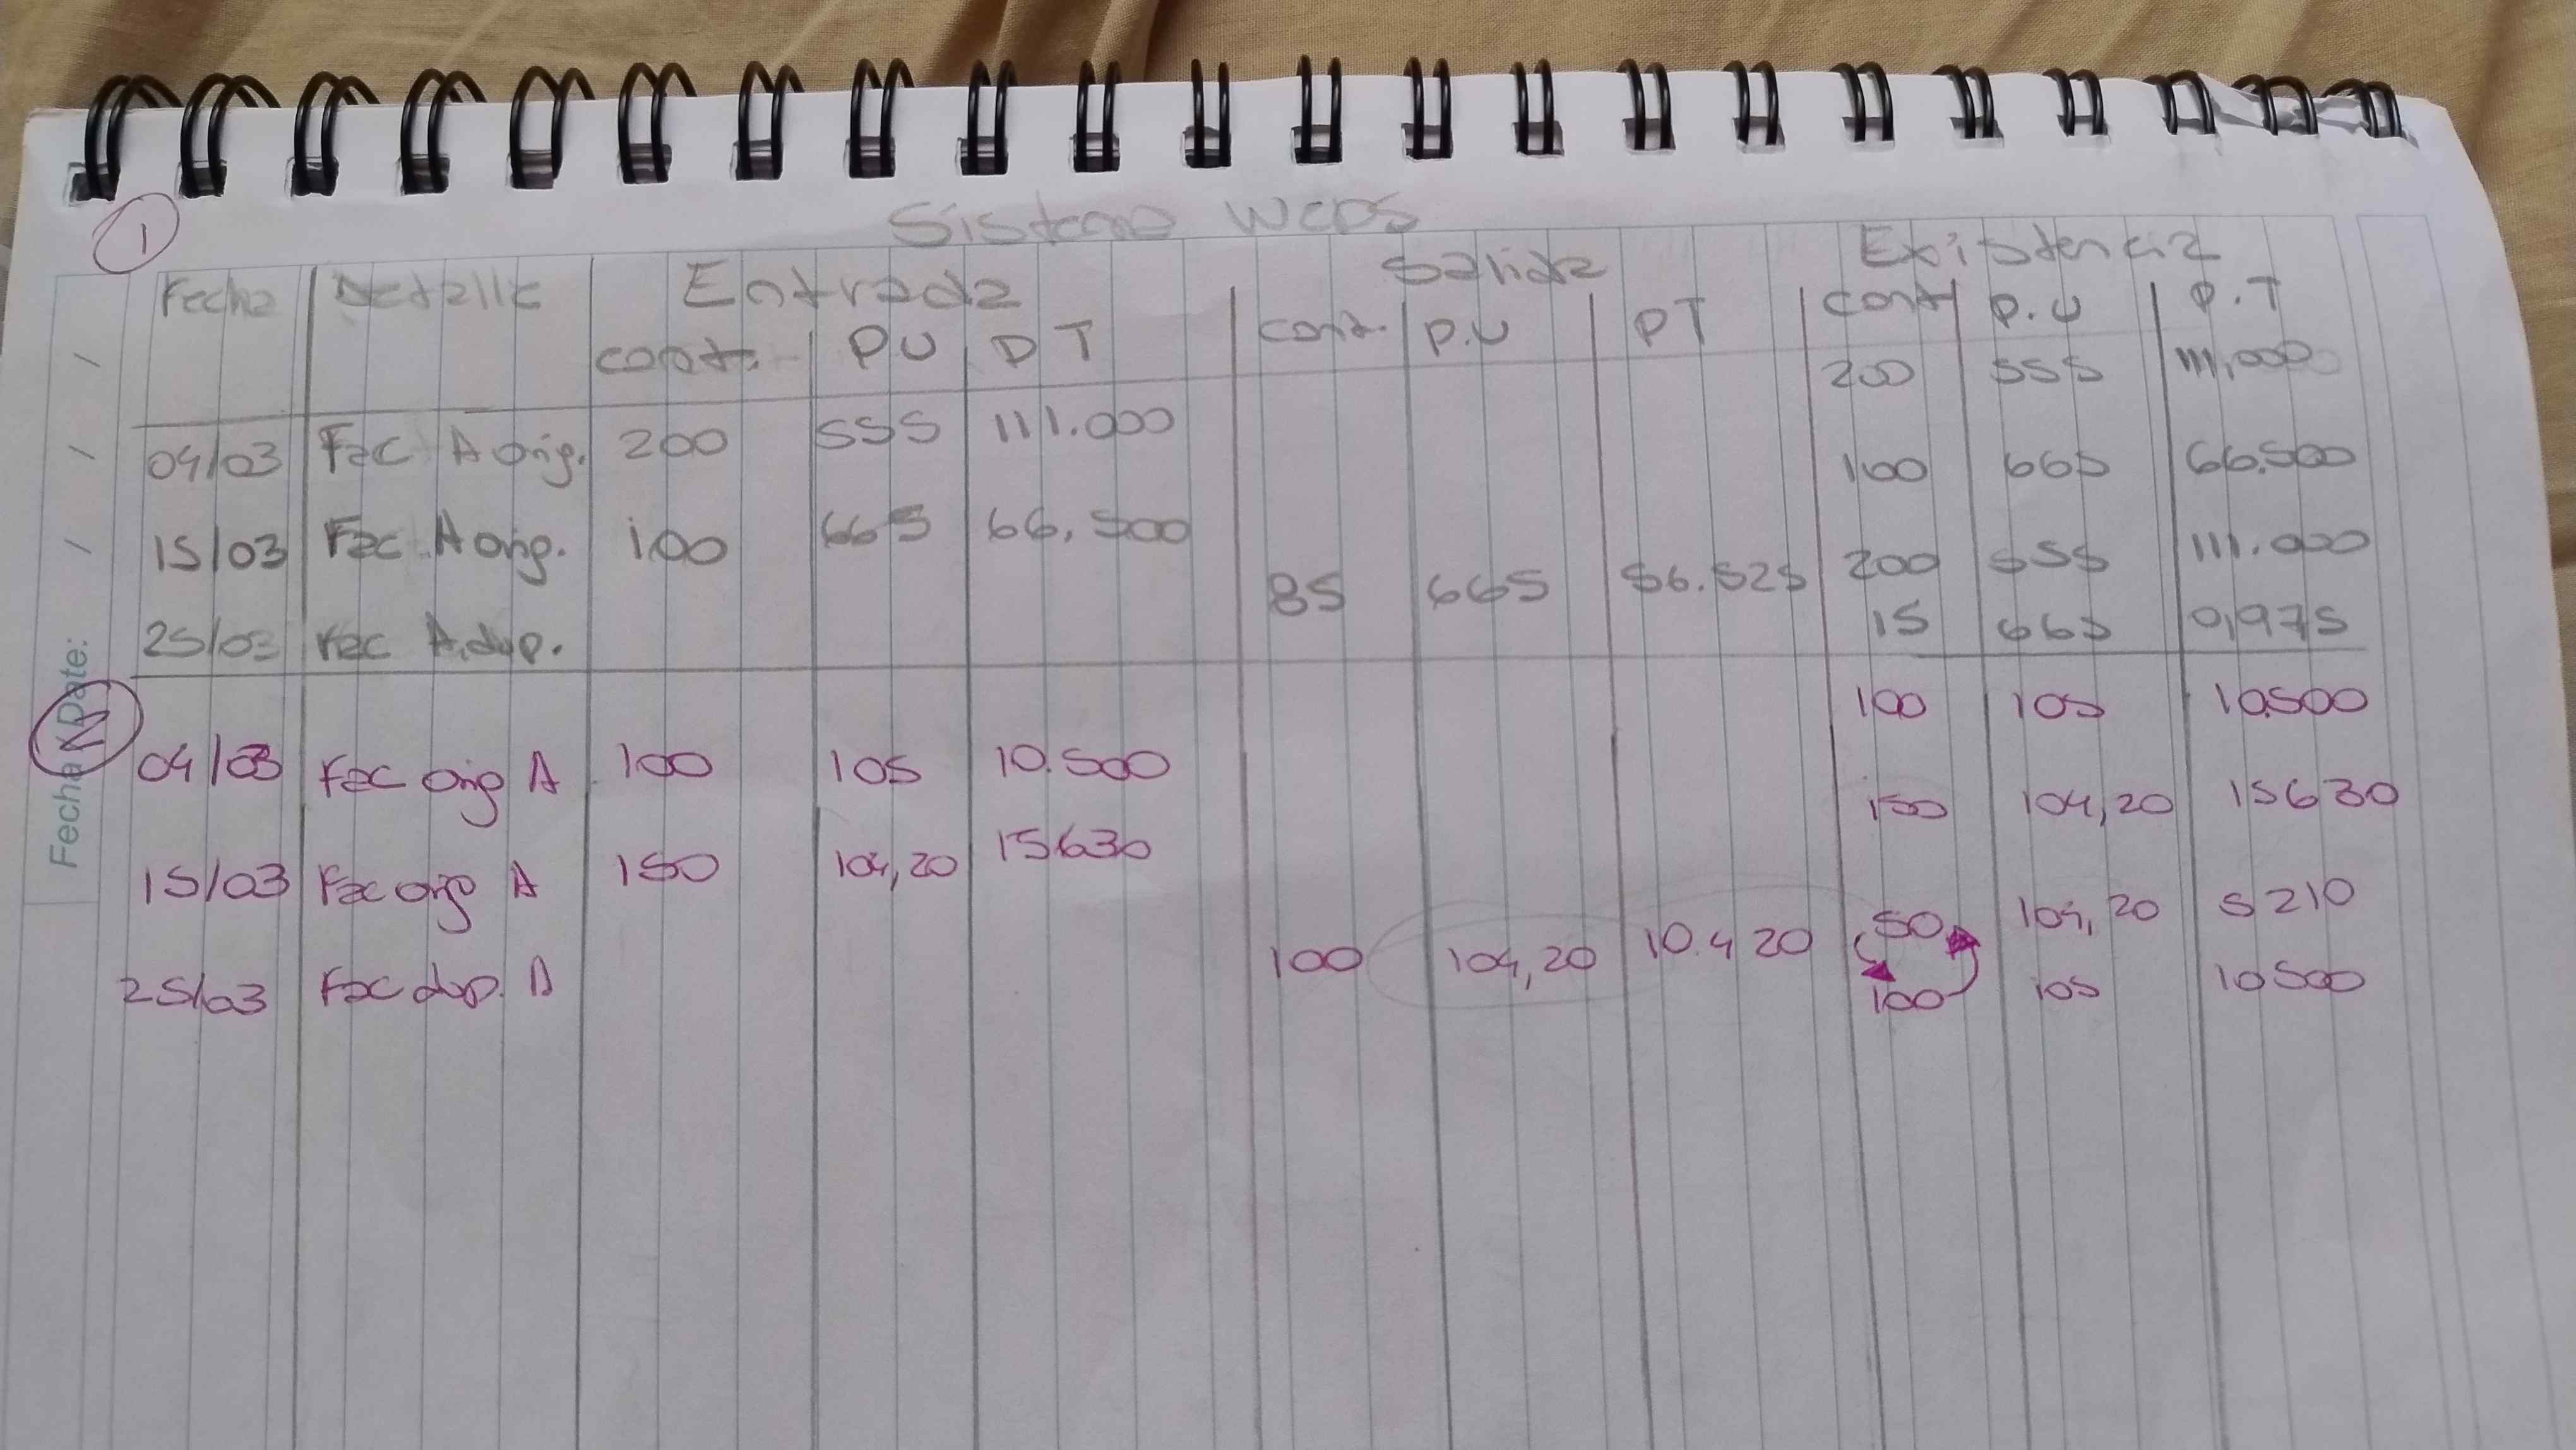 1
Sistema UEPS
Fecha Detalle Entrada Salida Existencia
cant. PU PT cant. P.U PT cant P.U P.T
200 555 111,000
04/03 Fac A orig. 200 555 111.000
100 665 66.500
15/03 Fac A orig. 100 665 66,500
200 555 111.000
25/03 Fac A.dup. 85 665 56.525 15 665 9,975
Fecha / Date: / / /
2
100 105 10.500
04/03 Fac orig A 100 105 10.500
150 104,20 15630
15/03 Fac orig A 150 104,20 15630
50 104,20 5210
25/03 Fac dup. A 100 104,20 10.420 100 105 10500